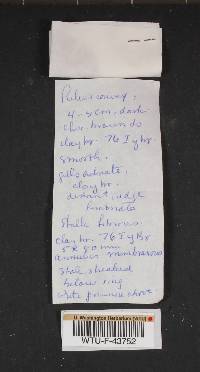 Pileus convex,
4-5 cm. dark
brown to
clay br. 76 I y br
smooth.
gills adnate,
clay br.
distant, edge
fimbriate
Stalk fibrous
clay br. 76 I y Br
5 x 90 mm
annulus membranous
Stalk sheathed
below ring
white pruinose above
U. Washington Herbarium (WTU)
WTU-F-43752